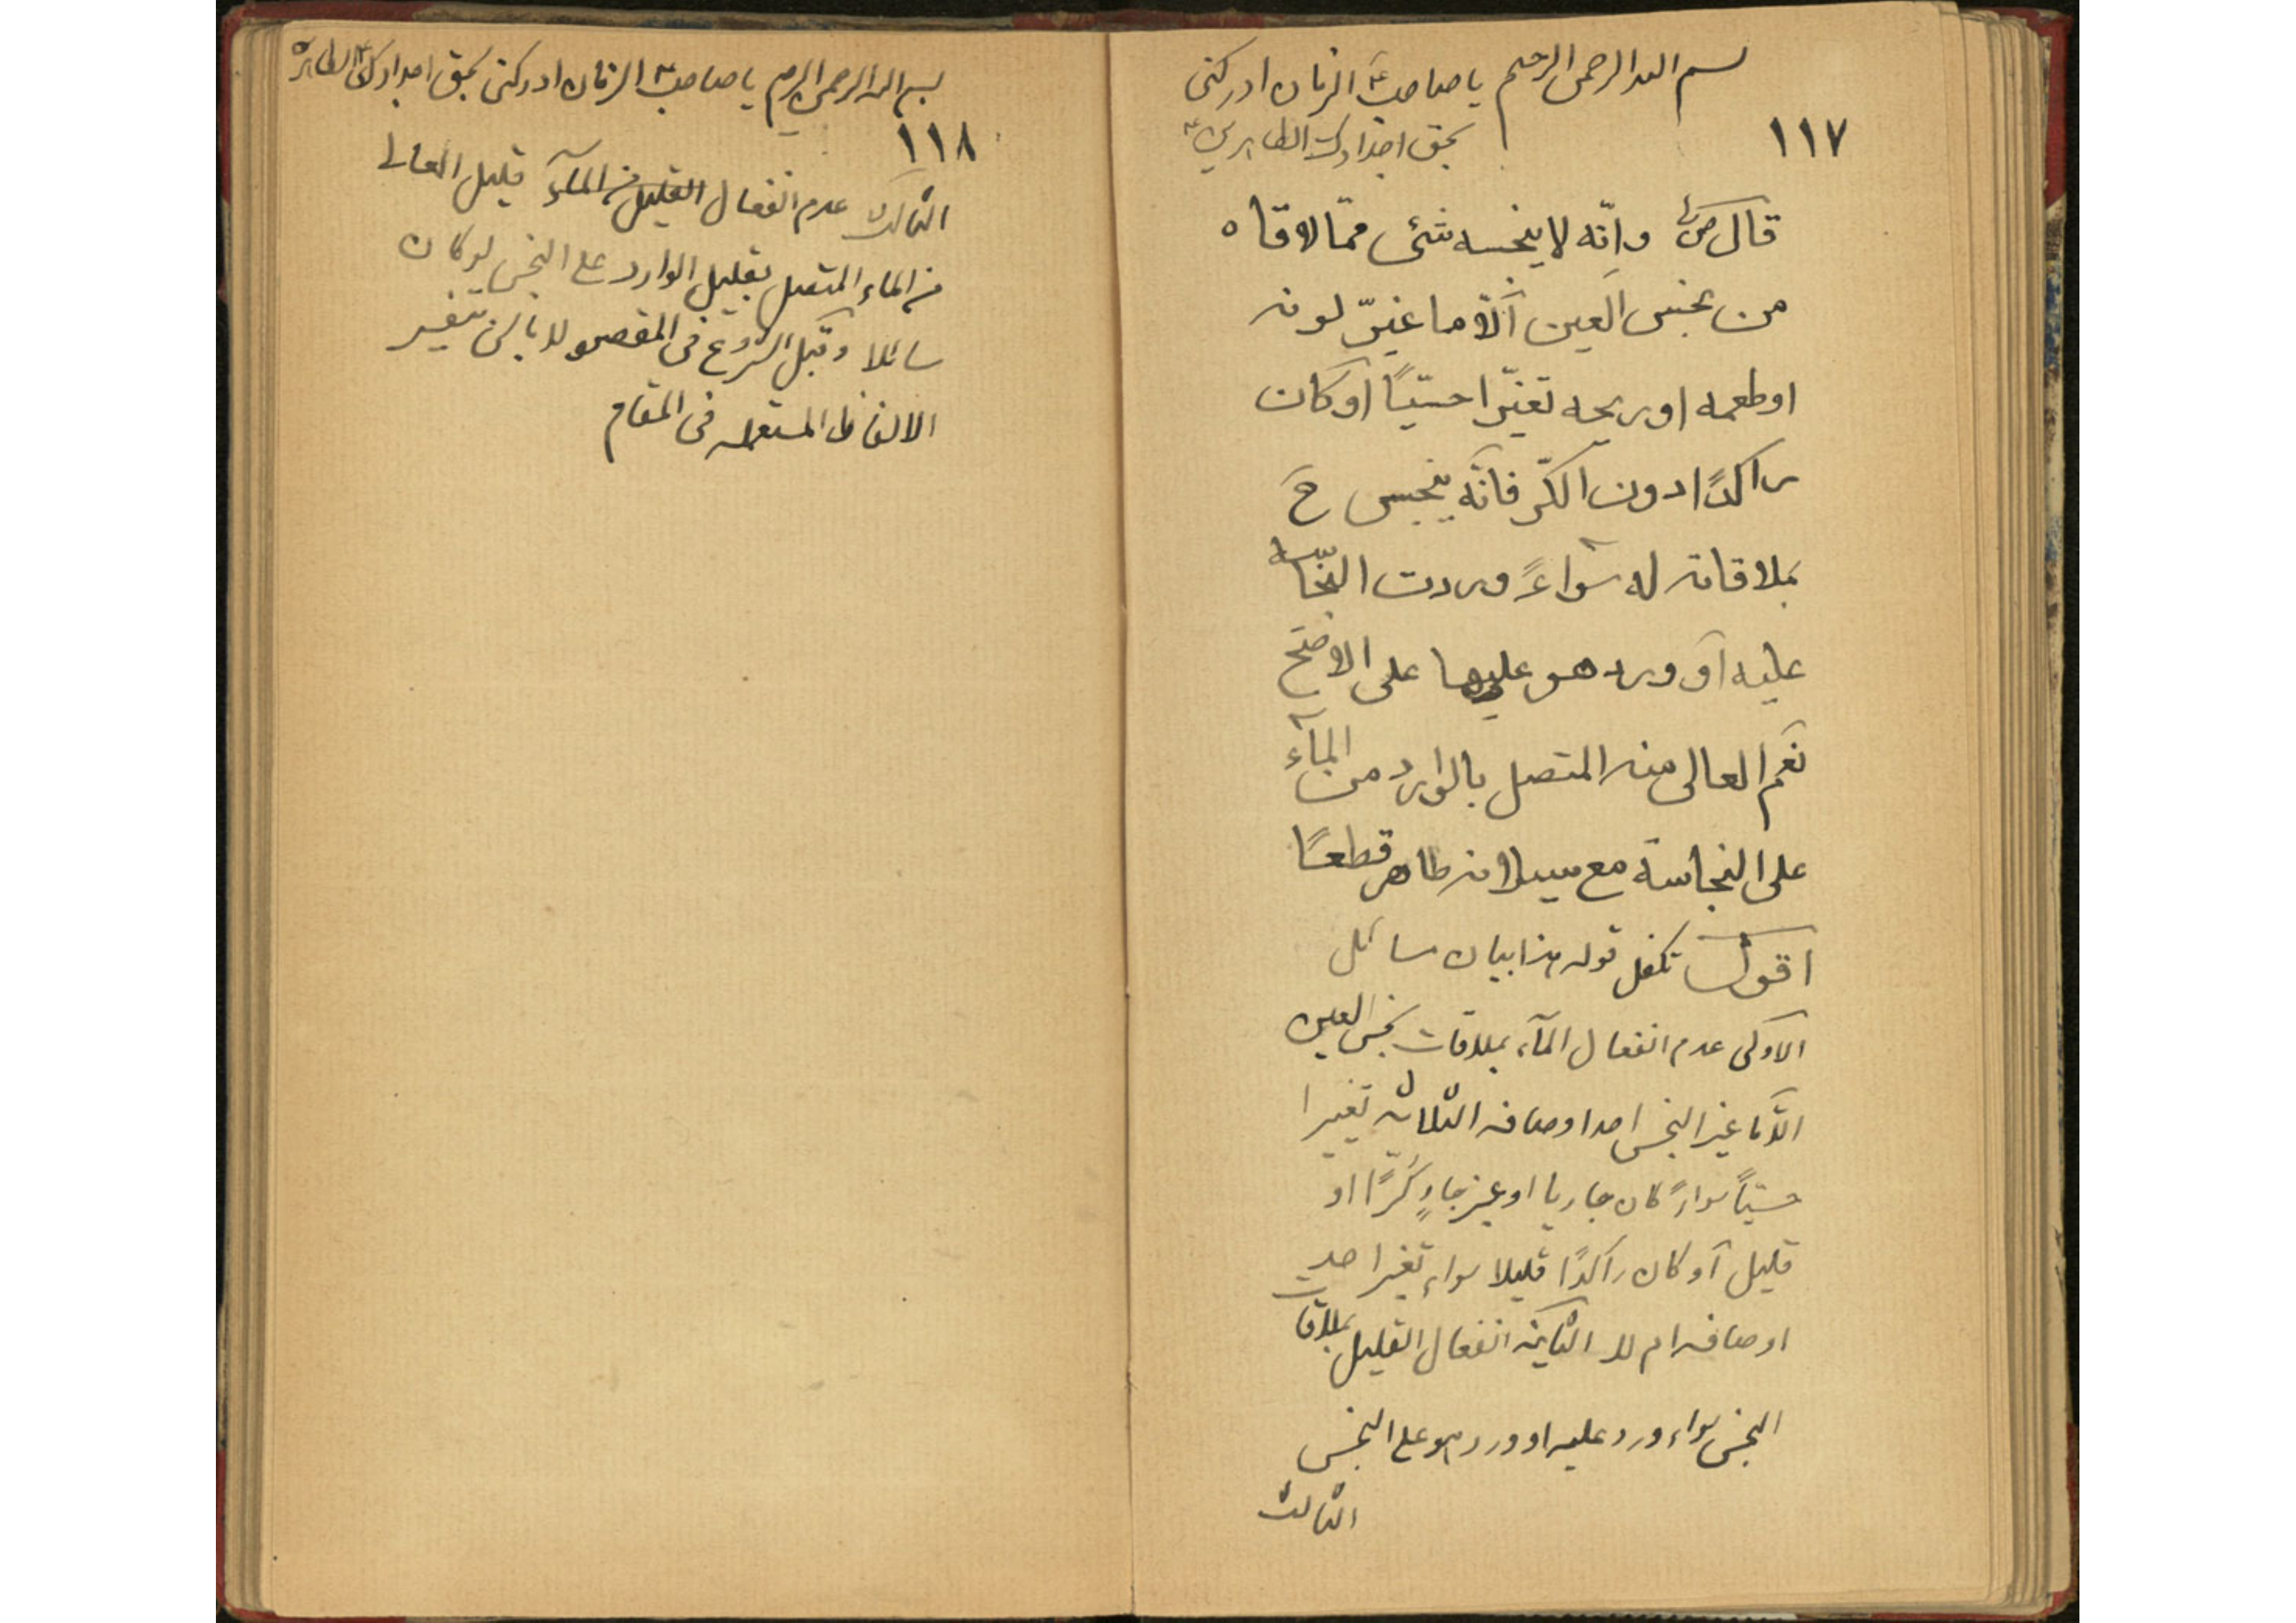 بسم الله الرحمن الرحیم یا صاحب الزمان ادرکنی
بحق اجدادک الطاهرین
١١٧
قال ص وانّه لا ینجسه شئ ممّا لاقاه
من نجس العین الّا ما غیّر لونه
او طعمه او ریحه تغیّرا حسّیًا او کان
راکدًا دون الکرّ فانّه ینجس ح
بملاقاته له سواءً وردت النجّاسه
علیه او ورد هو علیها علی الاصحّ
نعم العالی منه المتصل بالوارد من المآء
علی النجاسة مع سیلانه طاهر قطعًا
اقول تکفل قوله هذا بیان مسائل
الاولی عدم انفعال المآء بملاقات نجس العین
الّا ما غیر النجس احد اوصافه الثلاثه تغییرا
حسیّاً سواءً کان جاریا او غیر جارٍ کرًّا او
قلیل او کان راکدًا قلیلا سواء تغیر احد
اوصافه ام لا الثانیة انفعال القلیل بملاقات
النجس سواء ورد علیه او ورد هو علی النجس
الثالث
بسم الله الرحمن الرحیم یا صاحب الزمان ادرکنی بحق اجدادک الطاهرة
١١٨
الثالث عدم انفعال القلیل من المآء قلیل العالی
من الماء المتصل بقلیل الوارد علی النجس لو کان
سائلا وقبل الشروع فی المقصود لا باس بتفسیر
الالفاظ المستعمله فی المقام